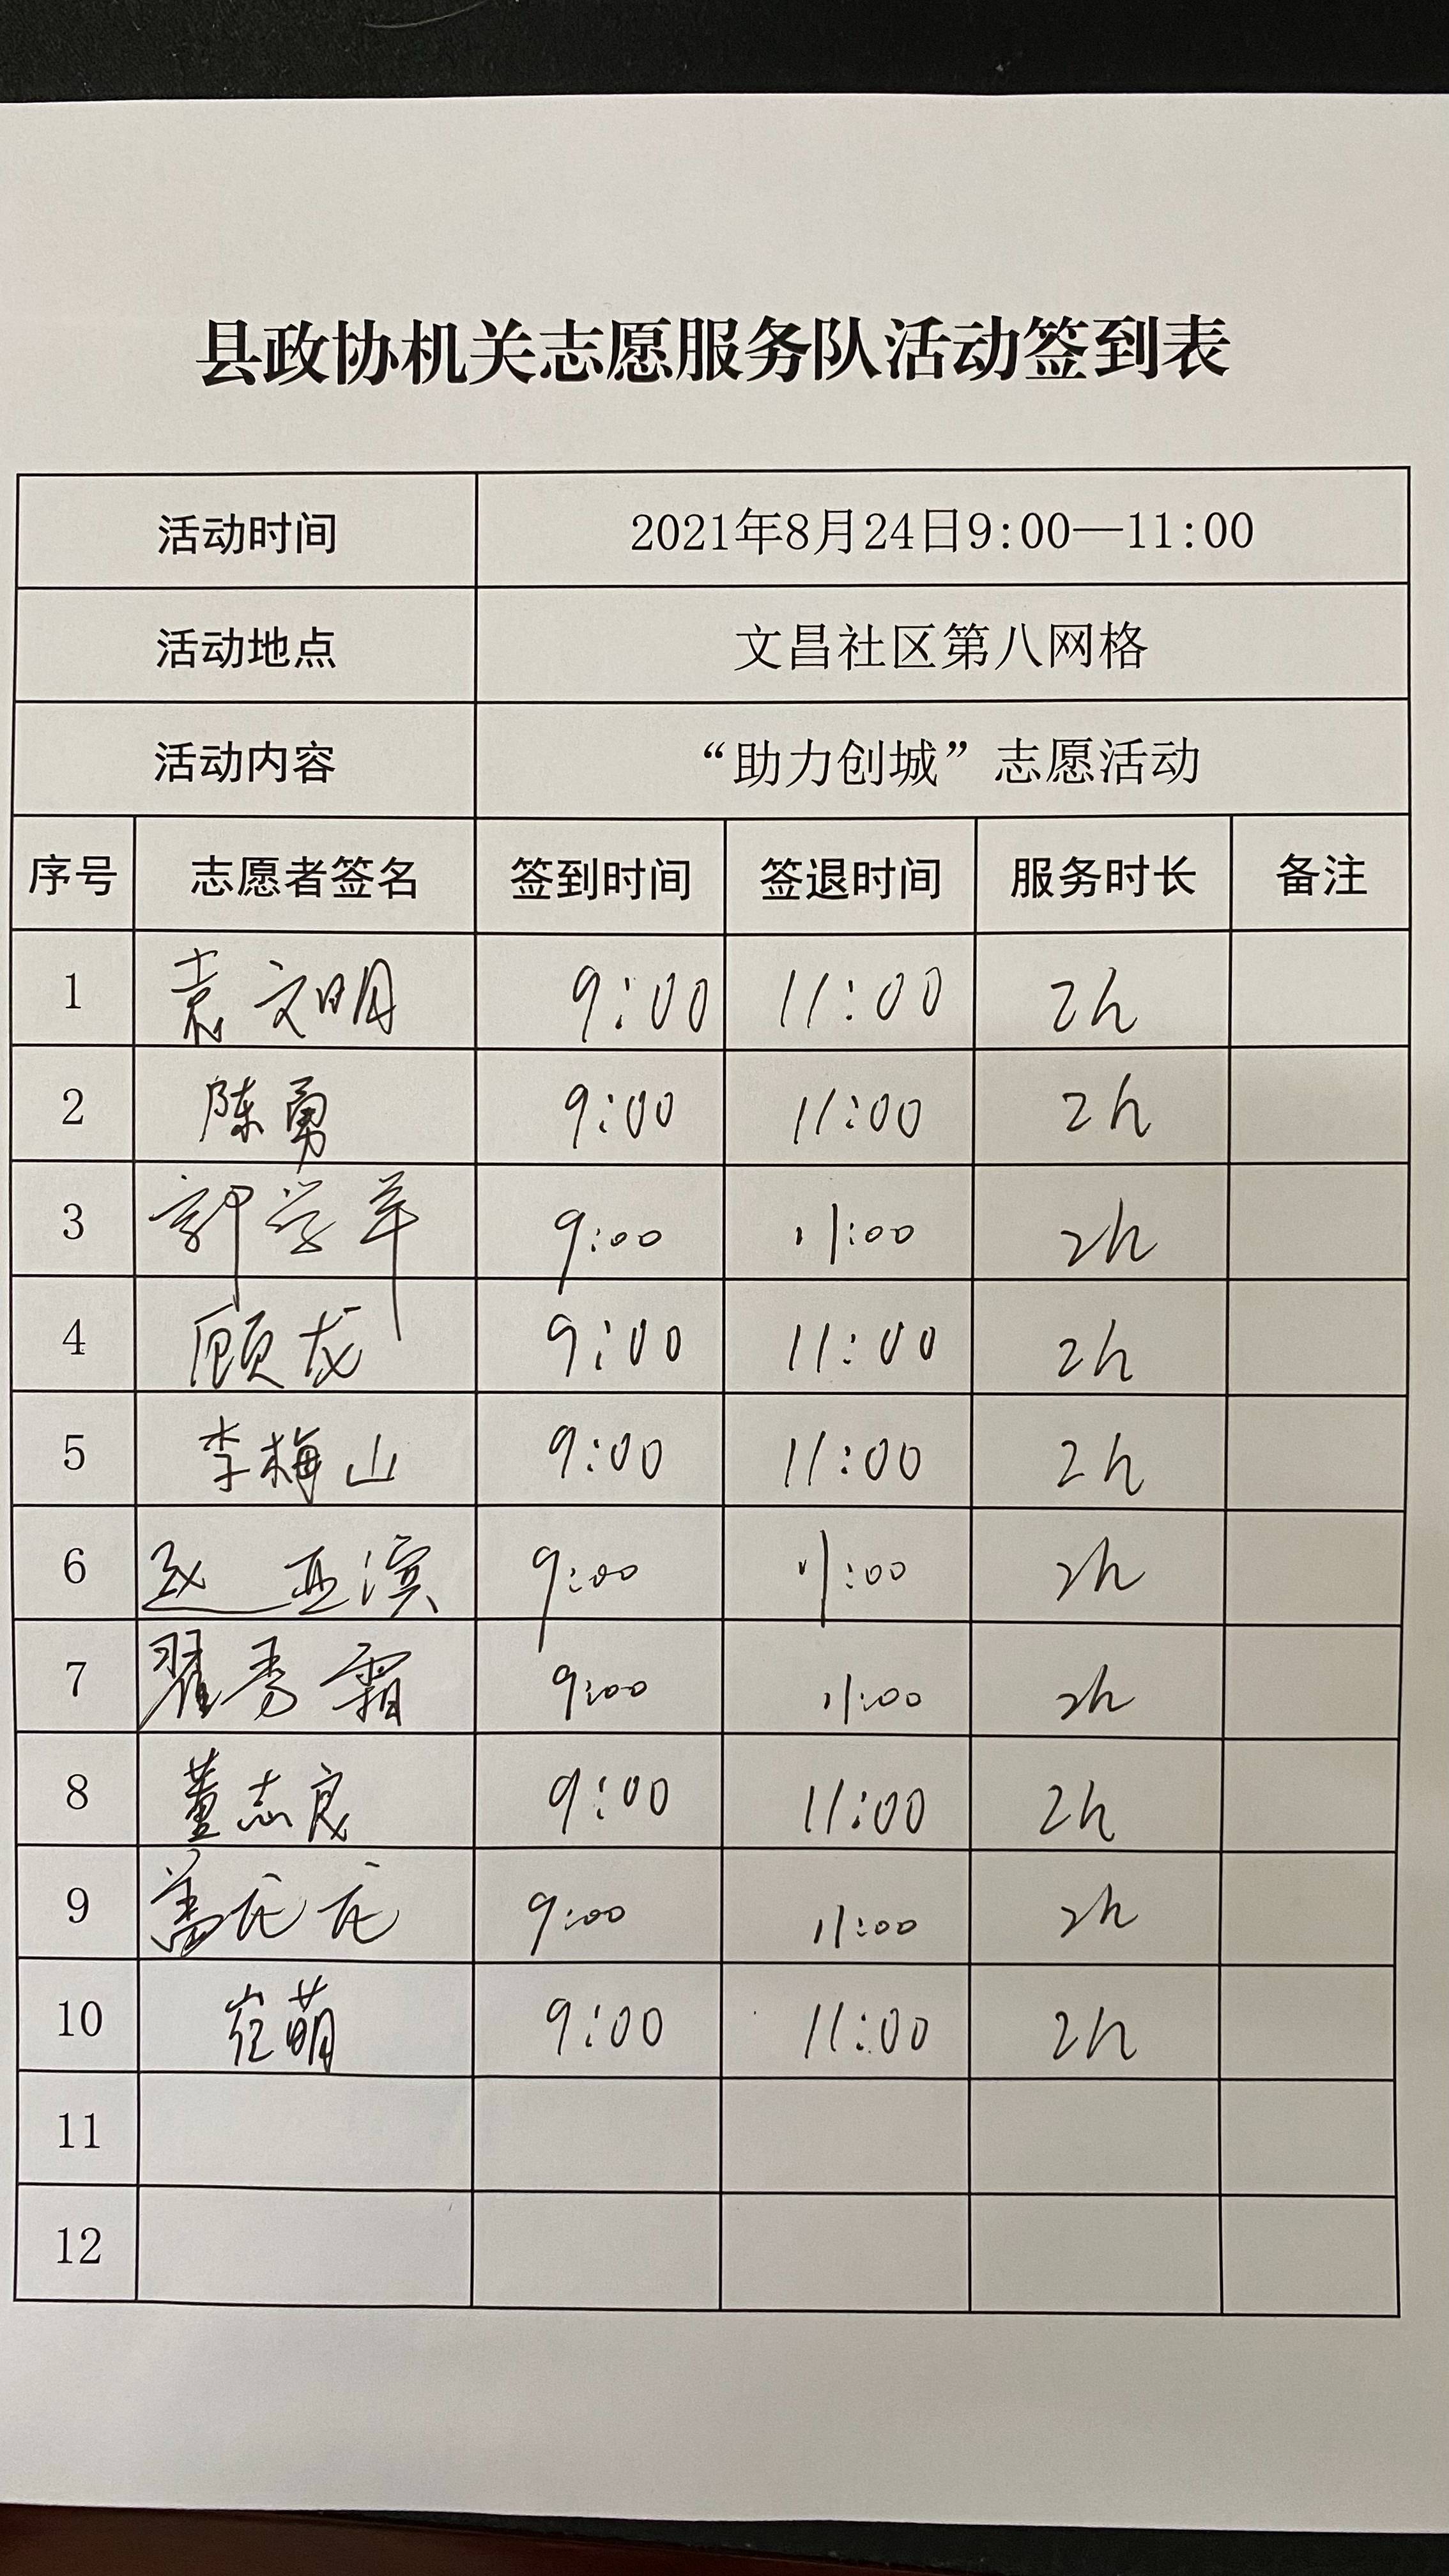 县政协机关志愿服务队活动签到表
活动时间 2021年8月24日9:00—11:00
活动地点 文昌社区第八网格
活动内容 “助力创城”志愿活动
序号 志愿者签名 签到时间 签退时间 服务时长 备注
1 袁文明 9:00 11:00 2h
2 陈勇 9:00 11:00 2h
3 郭学军 9:00 11:00 2h
4 顾龙 9:00 11:00 2h
5 李梅山 9:00 11:00 2h
6 赵亚滨 9:00 11:00 2h
7 翟秀霜 9:00 11:00 2h
8 董志良 9:00 11:00 2h
9 9:00 11:00 2h
10 崔萌 9:00 11:00 2h
11
12